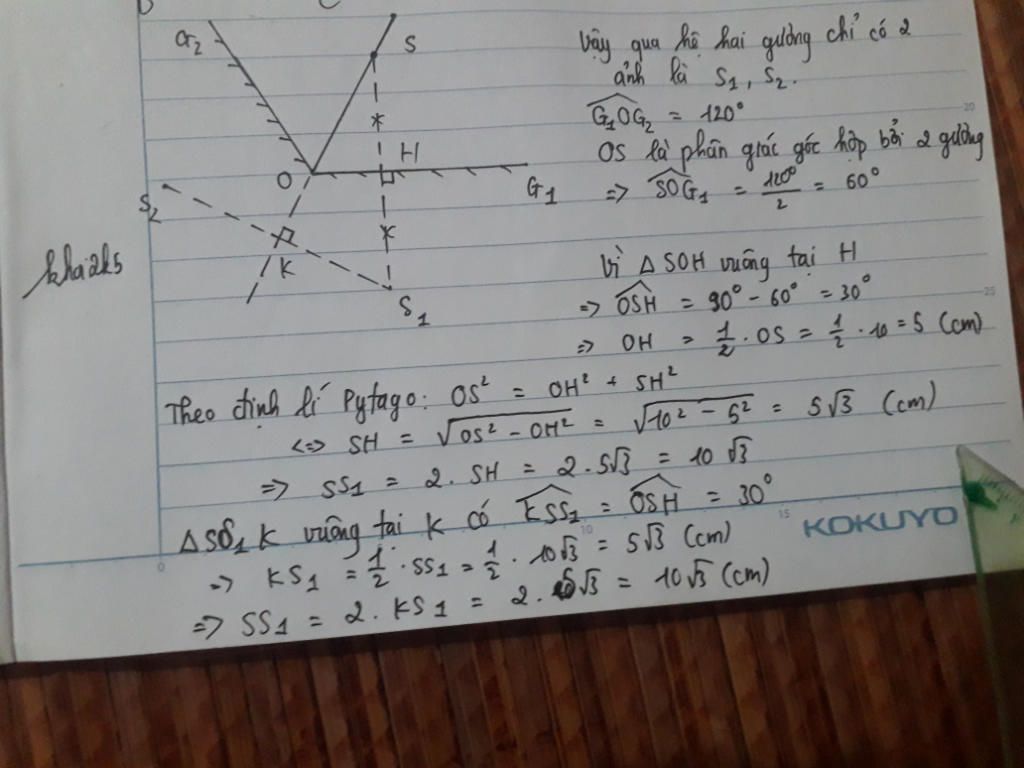 G₂
S
O
H
G₁
S₂
K
S₁
khai2k5
Vậy qua hệ hai gương chỉ có 2
ảnh là S₁, S₂.
G₁OG₂ = 120°
OS là phân giác góc hợp bởi 2 gương
=> SOG₁ = 120°/2 = 60°
Vì Δ SOH vuông tại H
=> OSH = 90° - 60° = 30°
=> OH = 1/2 . OS = 1/2 . 10 = 5 (cm)
Theo định lí Pytago: OS² = OH² + SH²
<=> SH = √(OS² - OH²) = √(10² - 5²) = 5√3 (cm)
=> SS₁ = 2. SH = 2. 5√3 = 10√3
ΔSS₁K vuông tại K có KSS₁ = OSH = 30°
=> KS₁ = 1/2 . SS₁ = 1/2 . 10√3 = 5√3 (cm)
=> SS₁ = 2. KS₁ = 2. 5√3 = 10√3 (cm)
KOKUYO
0
10
15
20
25